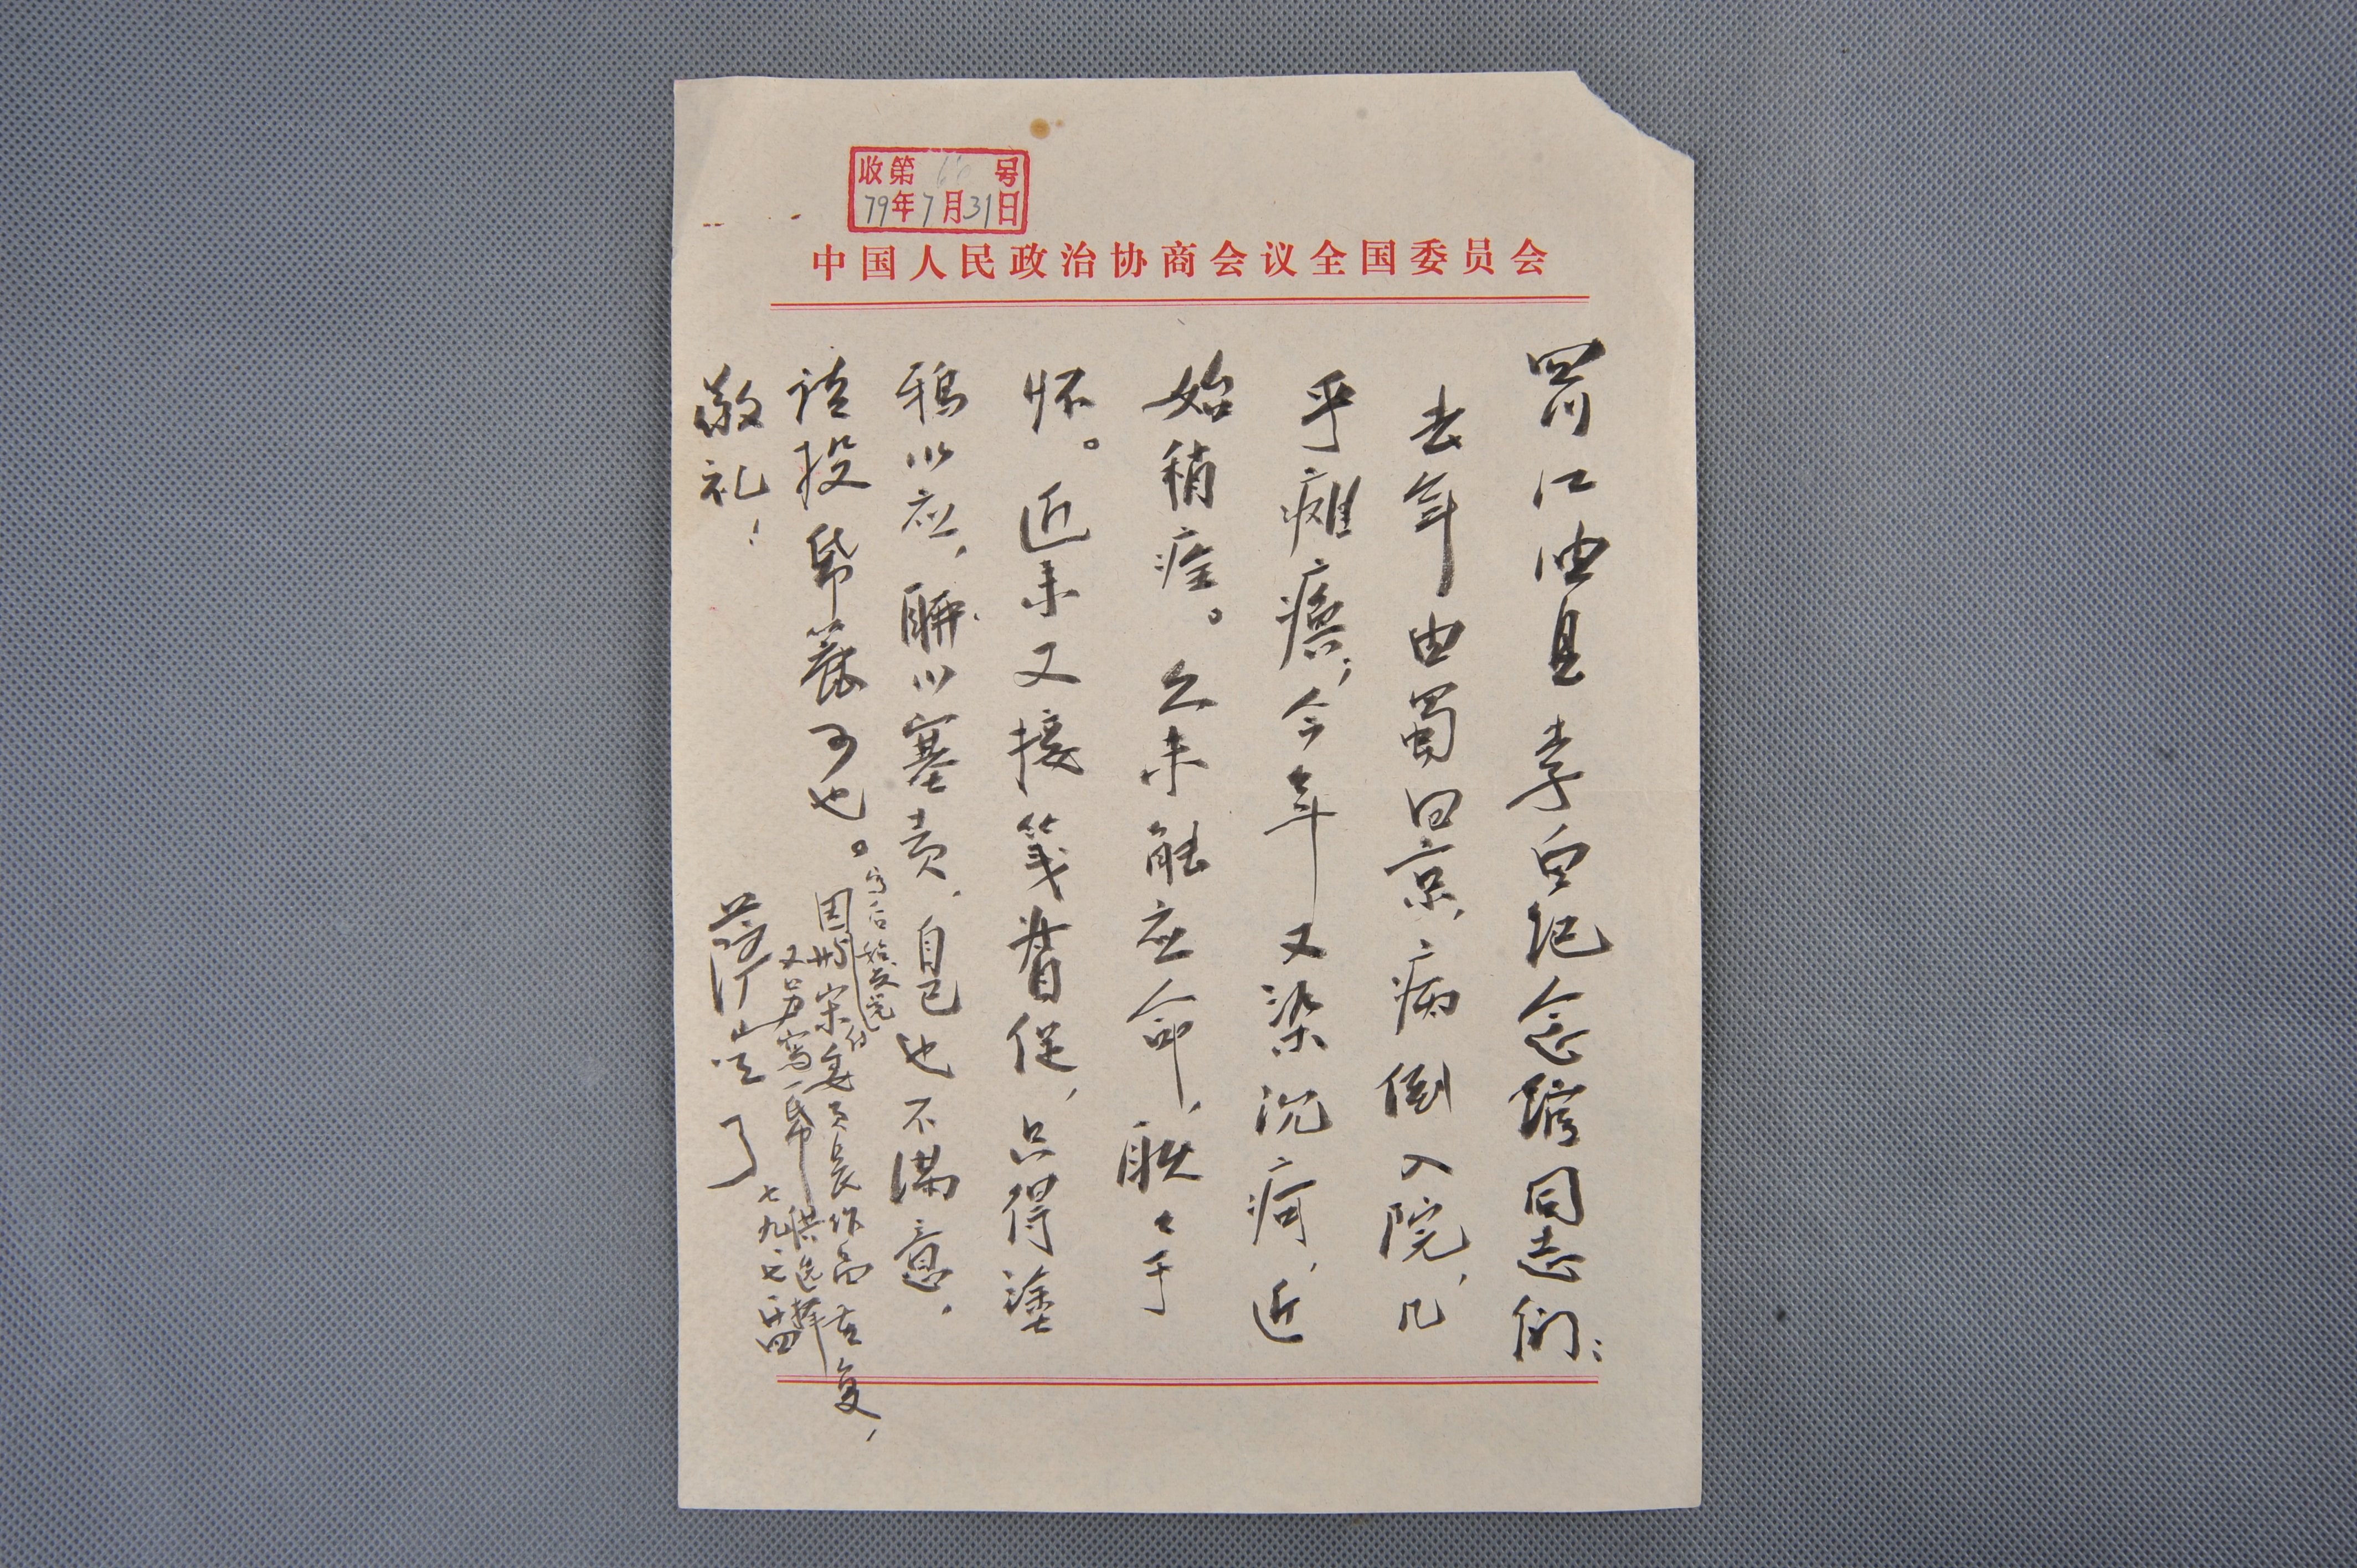 收第66号
79年7月31日
中国人民政治协商会议全国委员会
四川江油县李白纪念馆同志们：
去年由蜀回京，病倒入院，几
乎瘫痪；今年又染沉疴，近
始稍痊。久未能应命，耿〻于
怀。近来又接笺督促，只得塗
鸦以应，聊以塞责，自己也不满意，
请投帋簍可也。
写后始发完
因与宋付委员长作品有复，
又另寫一帋供选择
敬礼！
七九、七、廿四